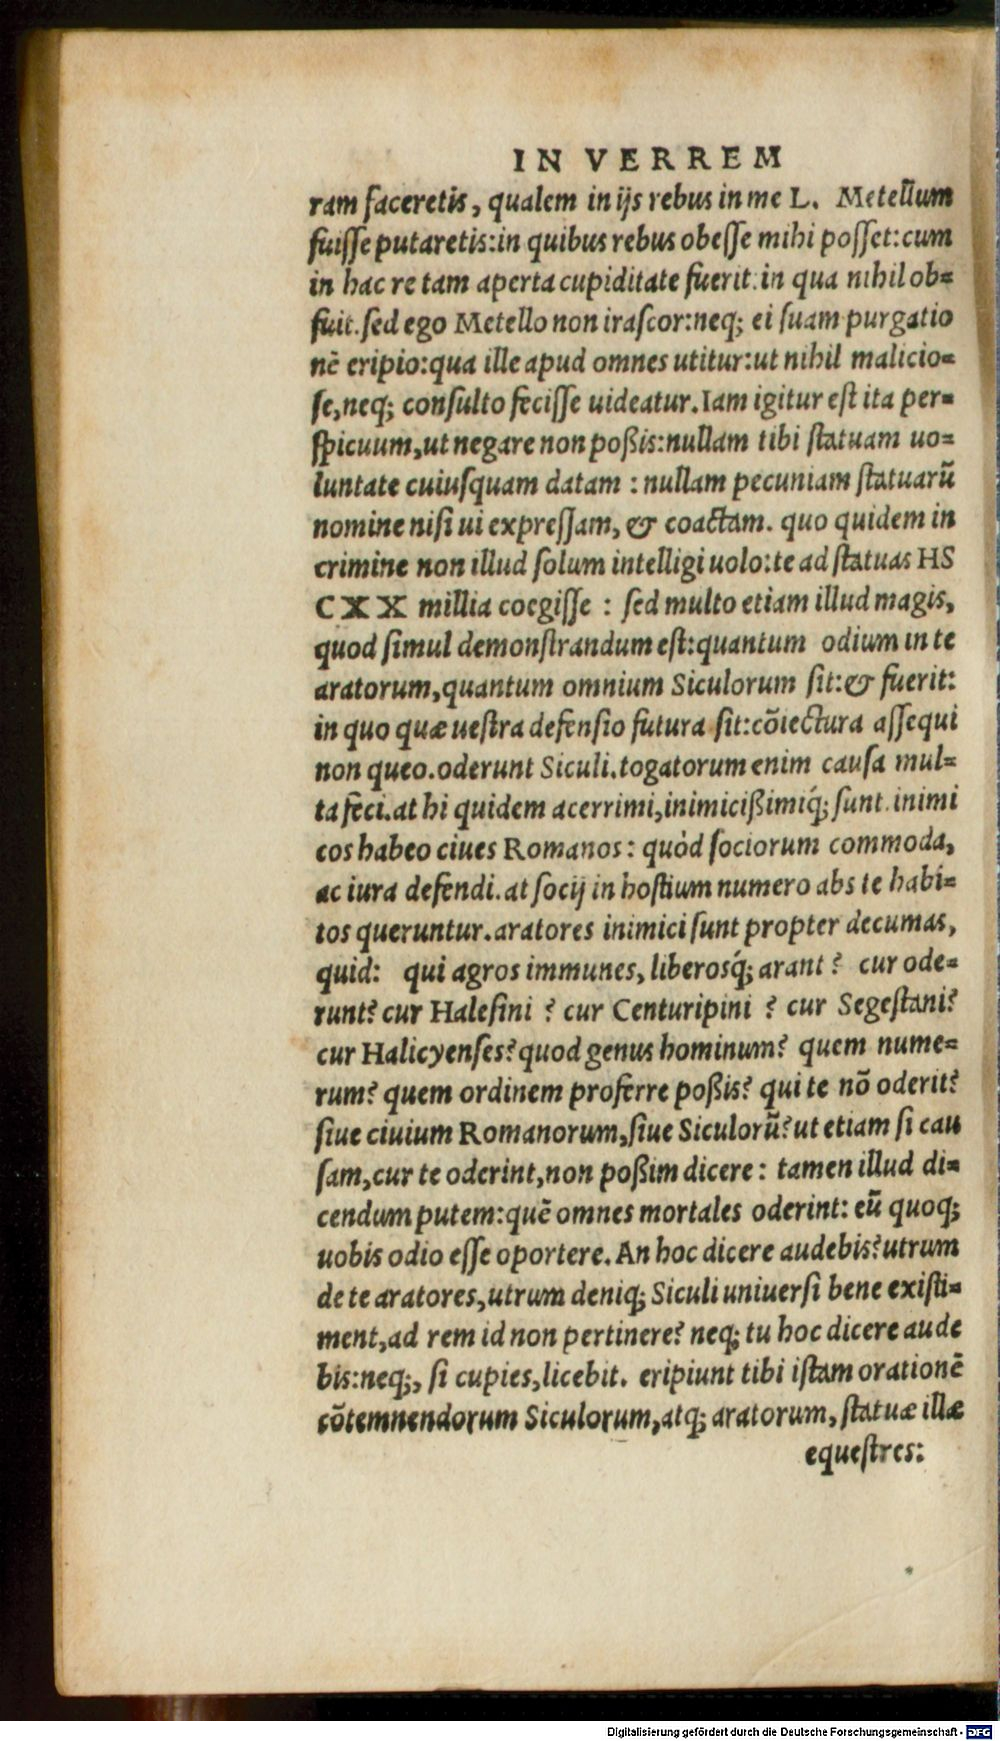 IN VERREM
ram faceretis, qualem in ijs rebus in me L. Metellum
fuisse putaretis:in quibus rebus obesse mihi posset:cum
in hac re tam aperta cupiditate fuerit:in qua nihil ob=
fuit.sed ego Metello non irascor:neq; ei suam purgatio
nē eripio:qua ille apud omnes utitur:ut nihil malicio=
se,neq; consulto fecisse uideatur.Iam igitur est ita per=
spicuum,ut negare non poßis:nullam tibi statuam uo=
luntate cuiusquam datam : nullam pecuniam statuarū
nomine nisi ui expressam, & coactam. quo quidem in
crimine non illud solum intelligi uolo:te ad statuas HS
CXX millia coegisse : sed multo etiam illud magis,
quod simul demonstrandum est:quantum odium in te
aratorum,quantum omnium Siculorum sit:& fuerit:
in quo quæ uestra defensio futura sit:cōiectura assequi
non queo.oderunt Siculi.togatorum enim causa mul=
ta feci.at hi quidem acerrimi,inimicißimiq́; sunt.inimi
cos habeo ciues Romanos : quòd sociorum commoda,
ac iura defendi.at socij in hostium numero abs te habi=
tos queruntur.aratores inimici sunt propter decumas,
quid: qui agros immunes, liberosq́; arant ? cur ode=
runt? cur Halesini ? cur Centuripini ? cur Segestani?
cur Halicyenses? quod genus hominum? quem nume=
rum? quem ordinem proferre poßis? qui te nō oderit?
siue ciuium Romanorum,siue Siculorū?ut etiam si cau
sam,cur te oderint,non poßim dicere : tamen illud di=
cendum putem:quē omnes mortales oderint: eū quoq;
uobis odio esse oportere. An hoc dicere audebis?utrum
de te aratores,utrum deniq; Siculi uniuersi bene existi=
ment,ad rem id non pertinere? neq; tu hoc dicere aude
bis:neq;, si cupies,licebit. eripiunt tibi istam orationē
cōtemnendorum Siculorum,atq; aratorum, statuæ illæ
equestres:
Digitalisierung gefördert durch die Deutsche Forschungsgemeinschaft - DFG